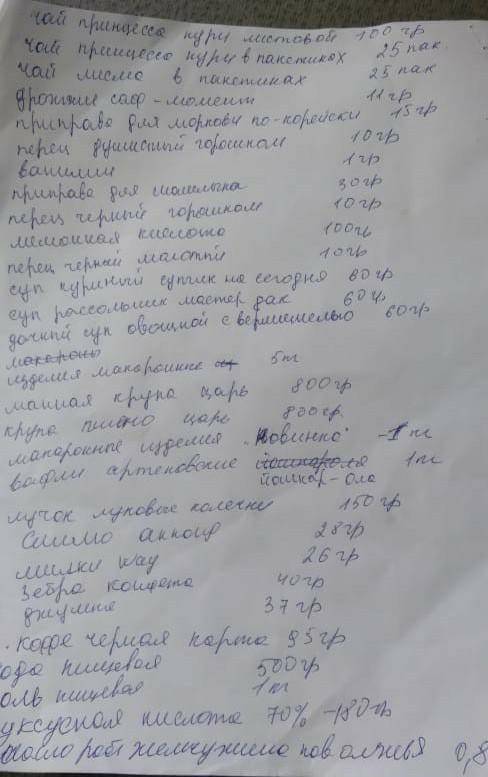 чай принцесса нури листовой 100 гр
чай принцесса нури в пакетиках 25 пак.
чай лисма в пакетиках 25 пак
дрожжи саф-момент 11 гр
приправа для моркови по-корейски 15 гр
перец душистый горошком 10 гр
ванилин 1 гр
приправа для шашлыка 30 гр
перец черный горошком 10 гр
лимонная кислота 100 гр
перец черный молотый 10 гр
суп куриный супчик на сегодня 60 гр
суп рассольник мастер дак 60 гр
дачный суп овощной с вермишелью 60 гр
макароны
изделия макаронные 5 т
манная крупа царь 800 гр
крупа пшено царь 800 гр.
макаронные изделия "Новинка" -1 т
вафли артековские 1 т
йошкар-ола
лучок луковые колечки 150 гр
28 гр
милки way 26 гр
зебра конфета 40 гр
джумка 37 гр
кофе черная карта 95 гр
ода пищевая 500 гр
оль пищевая 1 т
уксусная кислота 70% -180 гр
жемчужина поволжья 0,8